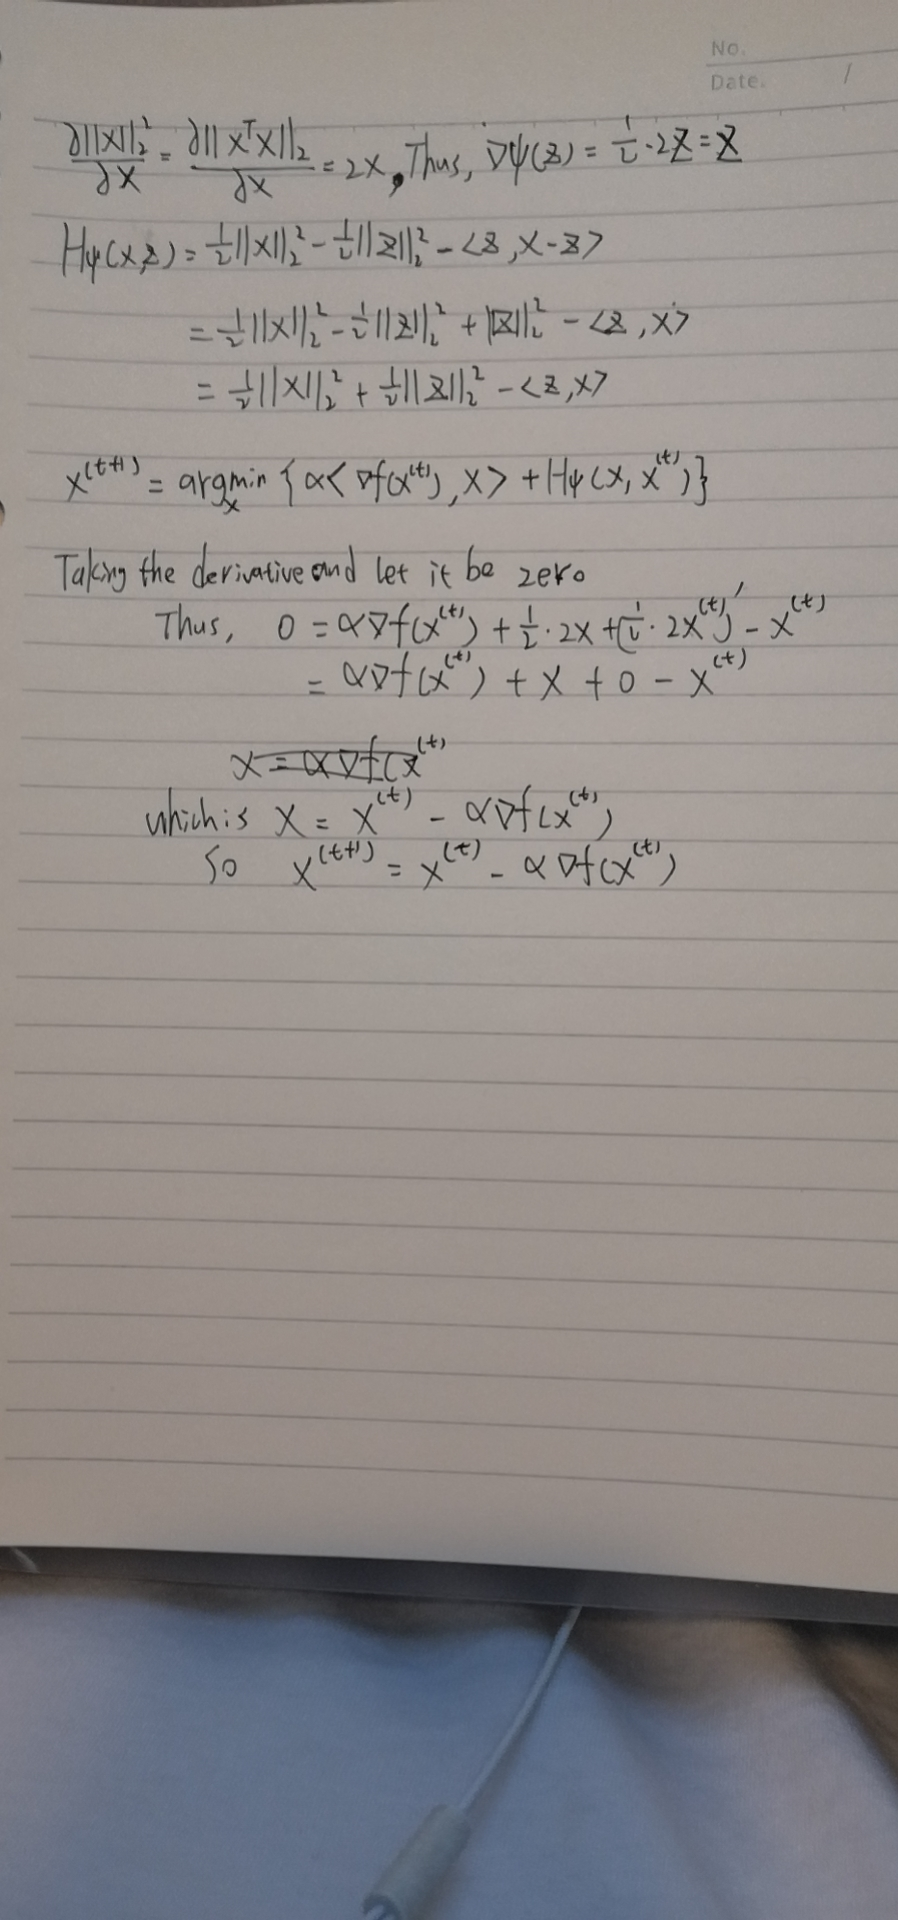 No.
Date. /
∂||x||₂²/∂x = ∂||xᵀx||₂/∂x = 2x, Thus, ∇ψ(z) = ½·2z = z
Hψ(x,z) = ½||x||₂² - ½||z||₂² - <z, x-z>
= ½||x||₂² - ½||z||₂² + ||z||₂² - <z, x>
= ½||x||₂² + ½||z||₂² - <z, x>
x⁽ᵗ⁺¹⁾ = argmin_x {α<∇f(x⁽ᵗ⁾), x> + Hψ(x, x⁽ᵗ⁾)}
Taking the derivative and let it be zero
Thus, 0 = α∇f(x⁽ᵗ⁾) + ½·2x + (½·2x⁽ᵗ⁾)' - x⁽ᵗ⁾
= α∇f(x⁽ᵗ⁾) + x + 0 - x⁽ᵗ⁾
x = α∇f(x⁽ᵗ⁾
which is x = x⁽ᵗ⁾ - α∇f(x⁽ᵗ⁾)
So x⁽ᵗ⁺¹⁾ = x⁽ᵗ⁾ - α∇f(x⁽ᵗ⁾)